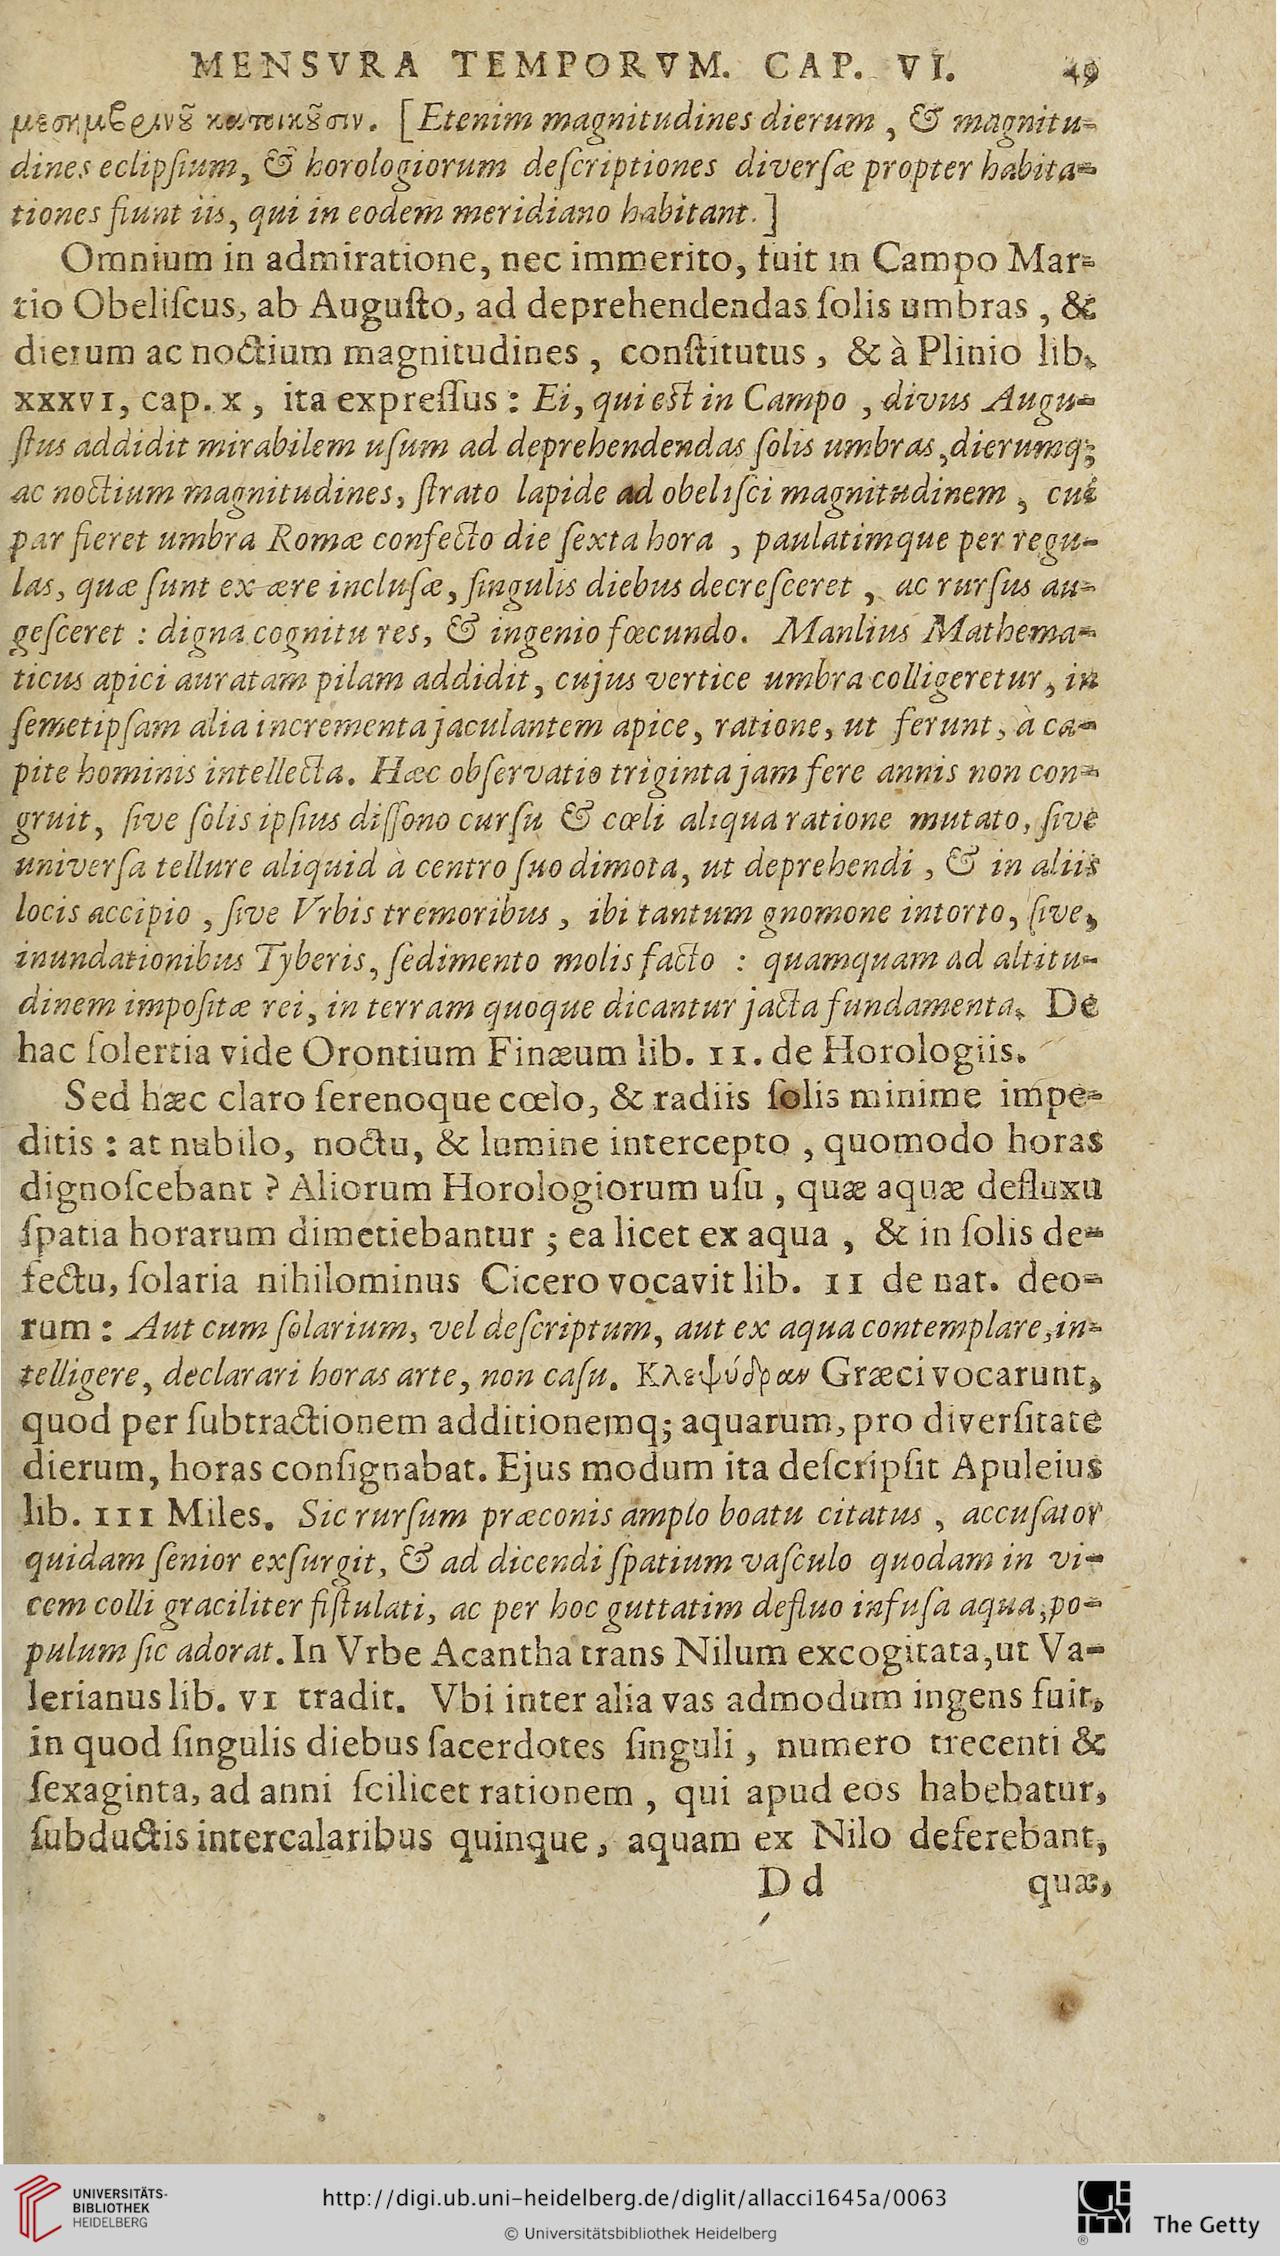 MENSVRA TEMPORVM. CAP. VI. 49
μεσημβρινȣ͂ κατοικȣ͂σιν. [Etenim magnitudines dierum, & magnitu-
dines eclipſium, & horologiorum deſcriptiones diverſæ propter habita-
tiones fiunt iis, qui in eodem meridiano habitant.]
Omnium in admiratione, nec immerito, fuit in Campo Mar-
tio Obeliſcus, ab Auguſto, ad deprehendendas ſolis umbras, &
dierum ac noctium magnitudines, conſtitutus, & à Plinio lib.
XXXVI, cap. X, ita expreſſus: Ei, qui eſt in Campo, divus Augu-
ſtus addidit mirabilem uſum ad deprehendendas ſolis umbras, dierumq;
ac noctium magnitudines, ſtrato lapide ad obeliſci magnitudinem, cui
par fieret umbra Romæ confecto die ſexta hora, paulatimque per regu-
las, quæ ſunt ex ære incluſæ, ſingulis diebus decreſceret, ac rurſus au-
geſceret: digna cognitu res, & ingenio fœcundo. Manlius Mathema-
ticus apici auratam pilam addidit, cujus vertice umbra colligeretur, in
ſemetipſam alia incrementa jaculantem apice, ratione, ut ferunt, à ca-
pite hominis intellecta. Hæc obſervatio triginta jam fere annis non con-
gruit, ſive ſolis ipſius diſſono curſu & cœli aliqua ratione mutato, ſive
univerſa tellure aliquid à centro ſuo dimota, ut deprehendi, & in aliis
locis accipio, ſive Vrbis tremoribus, ibi tantum gnomone intorto, ſive,
inundationibus Tyberis, ſedimento molis facto: quamquam ad altitu-
dinem impoſitæ rei, in terram quoque dicantur jacta fundamenta. De
hac ſolertia vide Orontium Finæum lib. II. de Horologiis.
Sed hæc claro ſerenoque cœlo, & radiis ſolis minime impe-
ditis: at nubilo, noctu, & lumine intercepto, quomodo horas
dignoſcebant? Aliorum Horologiorum uſu, quæ aquæ defluxu
ſpatia horarum dimetiebantur; ea licet ex aqua, & in ſolis de-
fectu, ſolaria nihilominus Cicero vocavit lib. II de nat. deo-
rum: Aut cum ſolarium, vel deſcriptum, aut ex aqua contemplare, in-
telligere, declarari horas arte, non caſu. Κλεψύδραν Græci vocarunt,
quod per ſubtractionem additionemq; aquarum, pro diverſitate
dierum, horas conſignabat. Ejus modum ita deſcripſit Apuleius
lib. III Miles. Sic rurſum præconis amplo boatu citatus, accuſator
quidam ſenior exſurgit, & ad dicendi ſpatium vaſculo quodam in vi-
cem colli graciliter fiſtulati, ac per hoc guttatim defluo infuſa aqua, po-
pulum ſic adorat. In Vrbe Acantha trans Nilum excogitata, ut Va-
lerianus lib. VI tradit. Vbi inter alia vas admodum ingens fuit,
in quod ſingulis diebus ſacerdotes ſinguli, numero trecenti &
ſexaginta, ad anni ſcilicet rationem, qui apud eos habebatur,
ſubductis intercalaribus quinque, aquam ex Nilo deferebant,
Dd quæ,
UNIVERSITÄTS-
BIBLIOTHEK
HEIDELBERG
http://digi.ub.uni-heidelberg.de/diglit/allacci1645a/0063
© Universitätsbibliothek Heidelberg
GETTY
®
The Getty